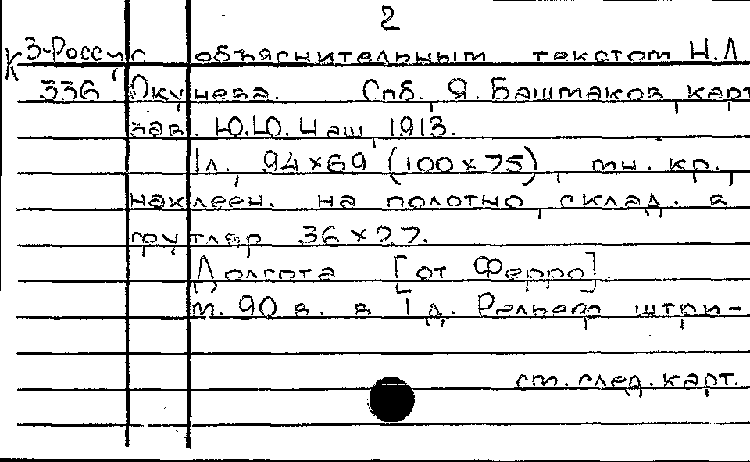 2
К 3-Россия объяснительным текстом Н.Л
336 Окунева. Спб, Я. Башмаков, карт
зав. Ю.Ю. Чаш, 1913.
1л., 94×69 (100×75), тн. кр.,
наклеен. на полотно, склад. в
футляр 36×27.
Долгота [от Ферро]
т. 90 в. в 1 д. Рельеф штри-
см. след. карт.